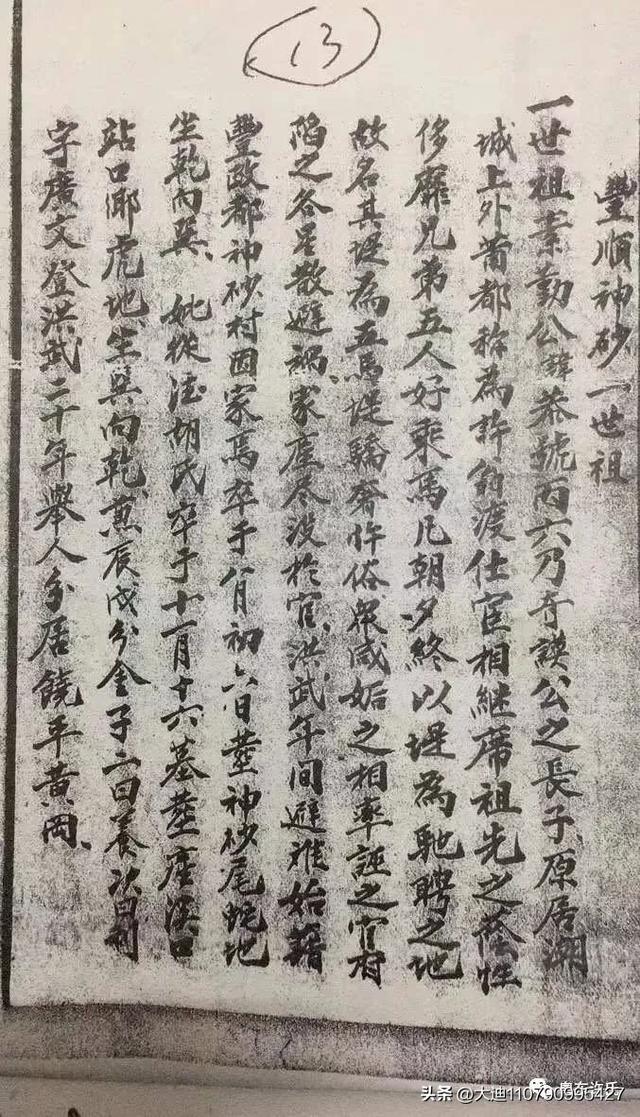 13
豐順神砂一世祖
一世祖業勤公諱恭號丙六乃奇謨公之長子原居潮
城上外莆都称為許翁渡仕宦相継席祖先之蔭性
侈靡兄弟五人好乘馬凡朝夕終以堤為馳聘之地
故名其堤為五馬堤驕奢忤俗衆咸妬之相率誣之官府
陷之各星散避禍家產尽没於官洪武年间避难始籍
豐政都神砂村因家焉卒于八月初六日塟神砂尾蛇地
坐乾向巽妣從 胡氏卒于十一月十六墓塟座溪口
站口 虎地坐巽向乾兼辰戌分金子二曰養次曰刑
字廣文登洪武二十年舉人分居饒平黄岡
头条 @大迪110790995427
粤东许氏